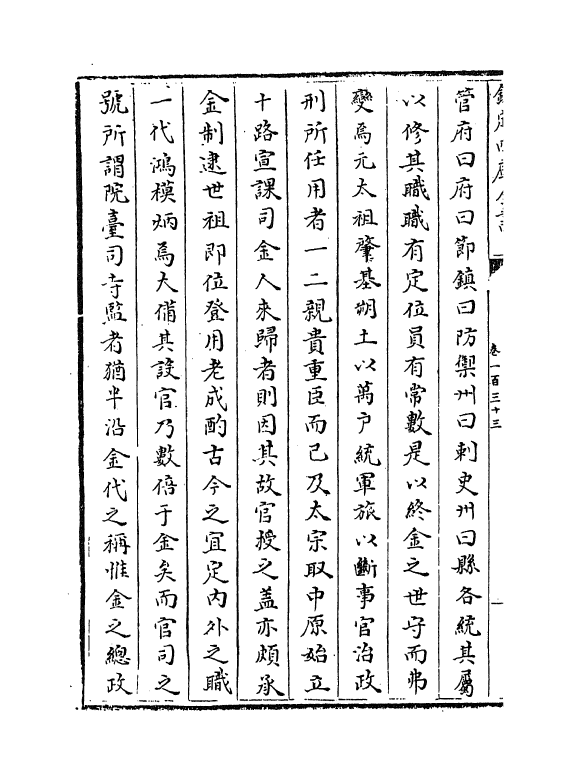 欽定四庫全書
卷一百三十三
一
管府曰府曰節鎮曰防禦州曰刺史州曰縣各統其屬
以修其職職有定位員有常數是以終金之世守而弗
變焉元太祖肇基朔土以萬户統軍旅以斷事官治政
刑所任用者一二親貴重臣而已及太宗取中原始立
十路宣課司金人來歸者則因其故官授之盖亦頗承
金制逮世祖即位登用老成酌古今之宜定内外之職
一代鴻模炳焉大備其設官乃數倍于金矣而官司之
號所謂院臺司寺監者猶半沿金代之稱惟金之總政